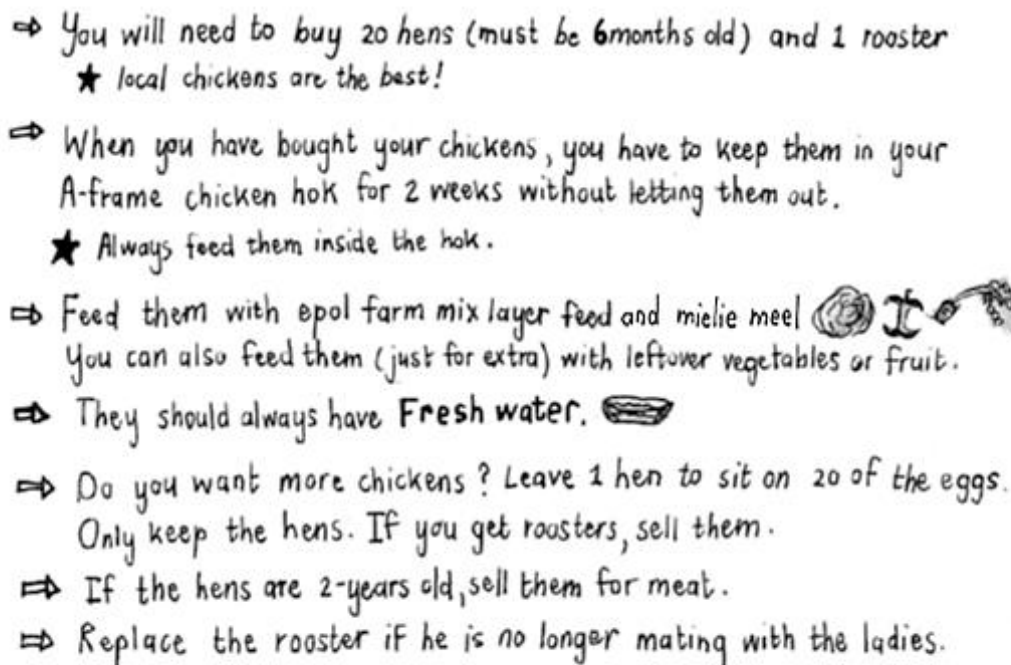 ⇨ You will need to buy 20 hens (must be 6months old) and 1 rooster
★ local chickens are the best!
⇨ When you have bought your chickens, you have to keep them in your
A-frame chicken hok for 2 weeks without letting them out.
★ Always feed them inside the hok.
⇨ Feed them with epol farm mix layer feed and mielie meel
You can also feed them (just for extra) with leftover vegetables or fruit.
⇨ They should always have Fresh water.
⇨ Do you want more chickens? Leave 1 hen to sit on 20 of the eggs.
Only keep the hens. If you get roosters, sell them.
⇨ If the hens are 2-years old, sell them for meat.
⇨ Replace the rooster if he is no longer mating with the ladies.